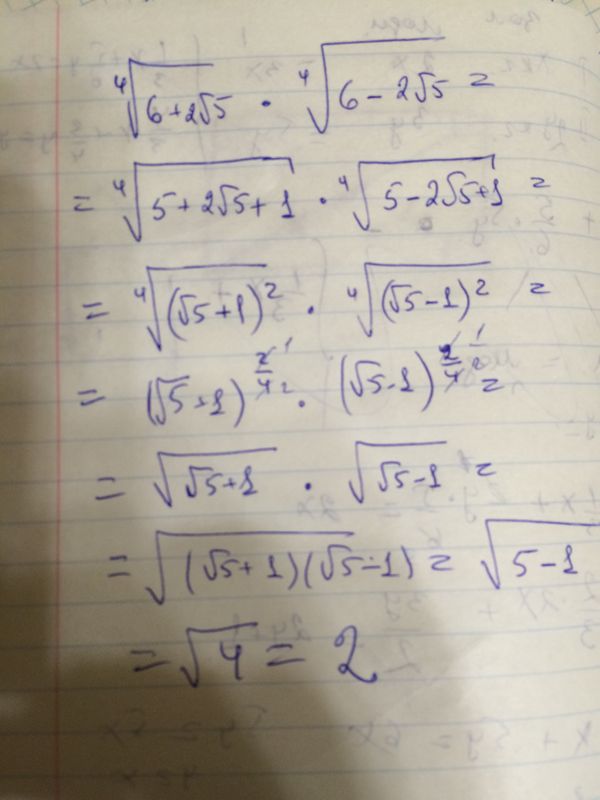 ⁴√(6+2√5) · ⁴√(6-2√5) =
= ⁴√(5+2√5+1) · ⁴√(5-2√5+1) =
= ⁴√((√5+1)²) · ⁴√((√5-1)²) =
= (√5+1)^(2/4 1/2) · (√5-1)^(2/4 1/2) =
= √(√5+1) · √(√5-1) =
= √((√5+1)(√5-1)) = √(5-1)
= √4 = 2